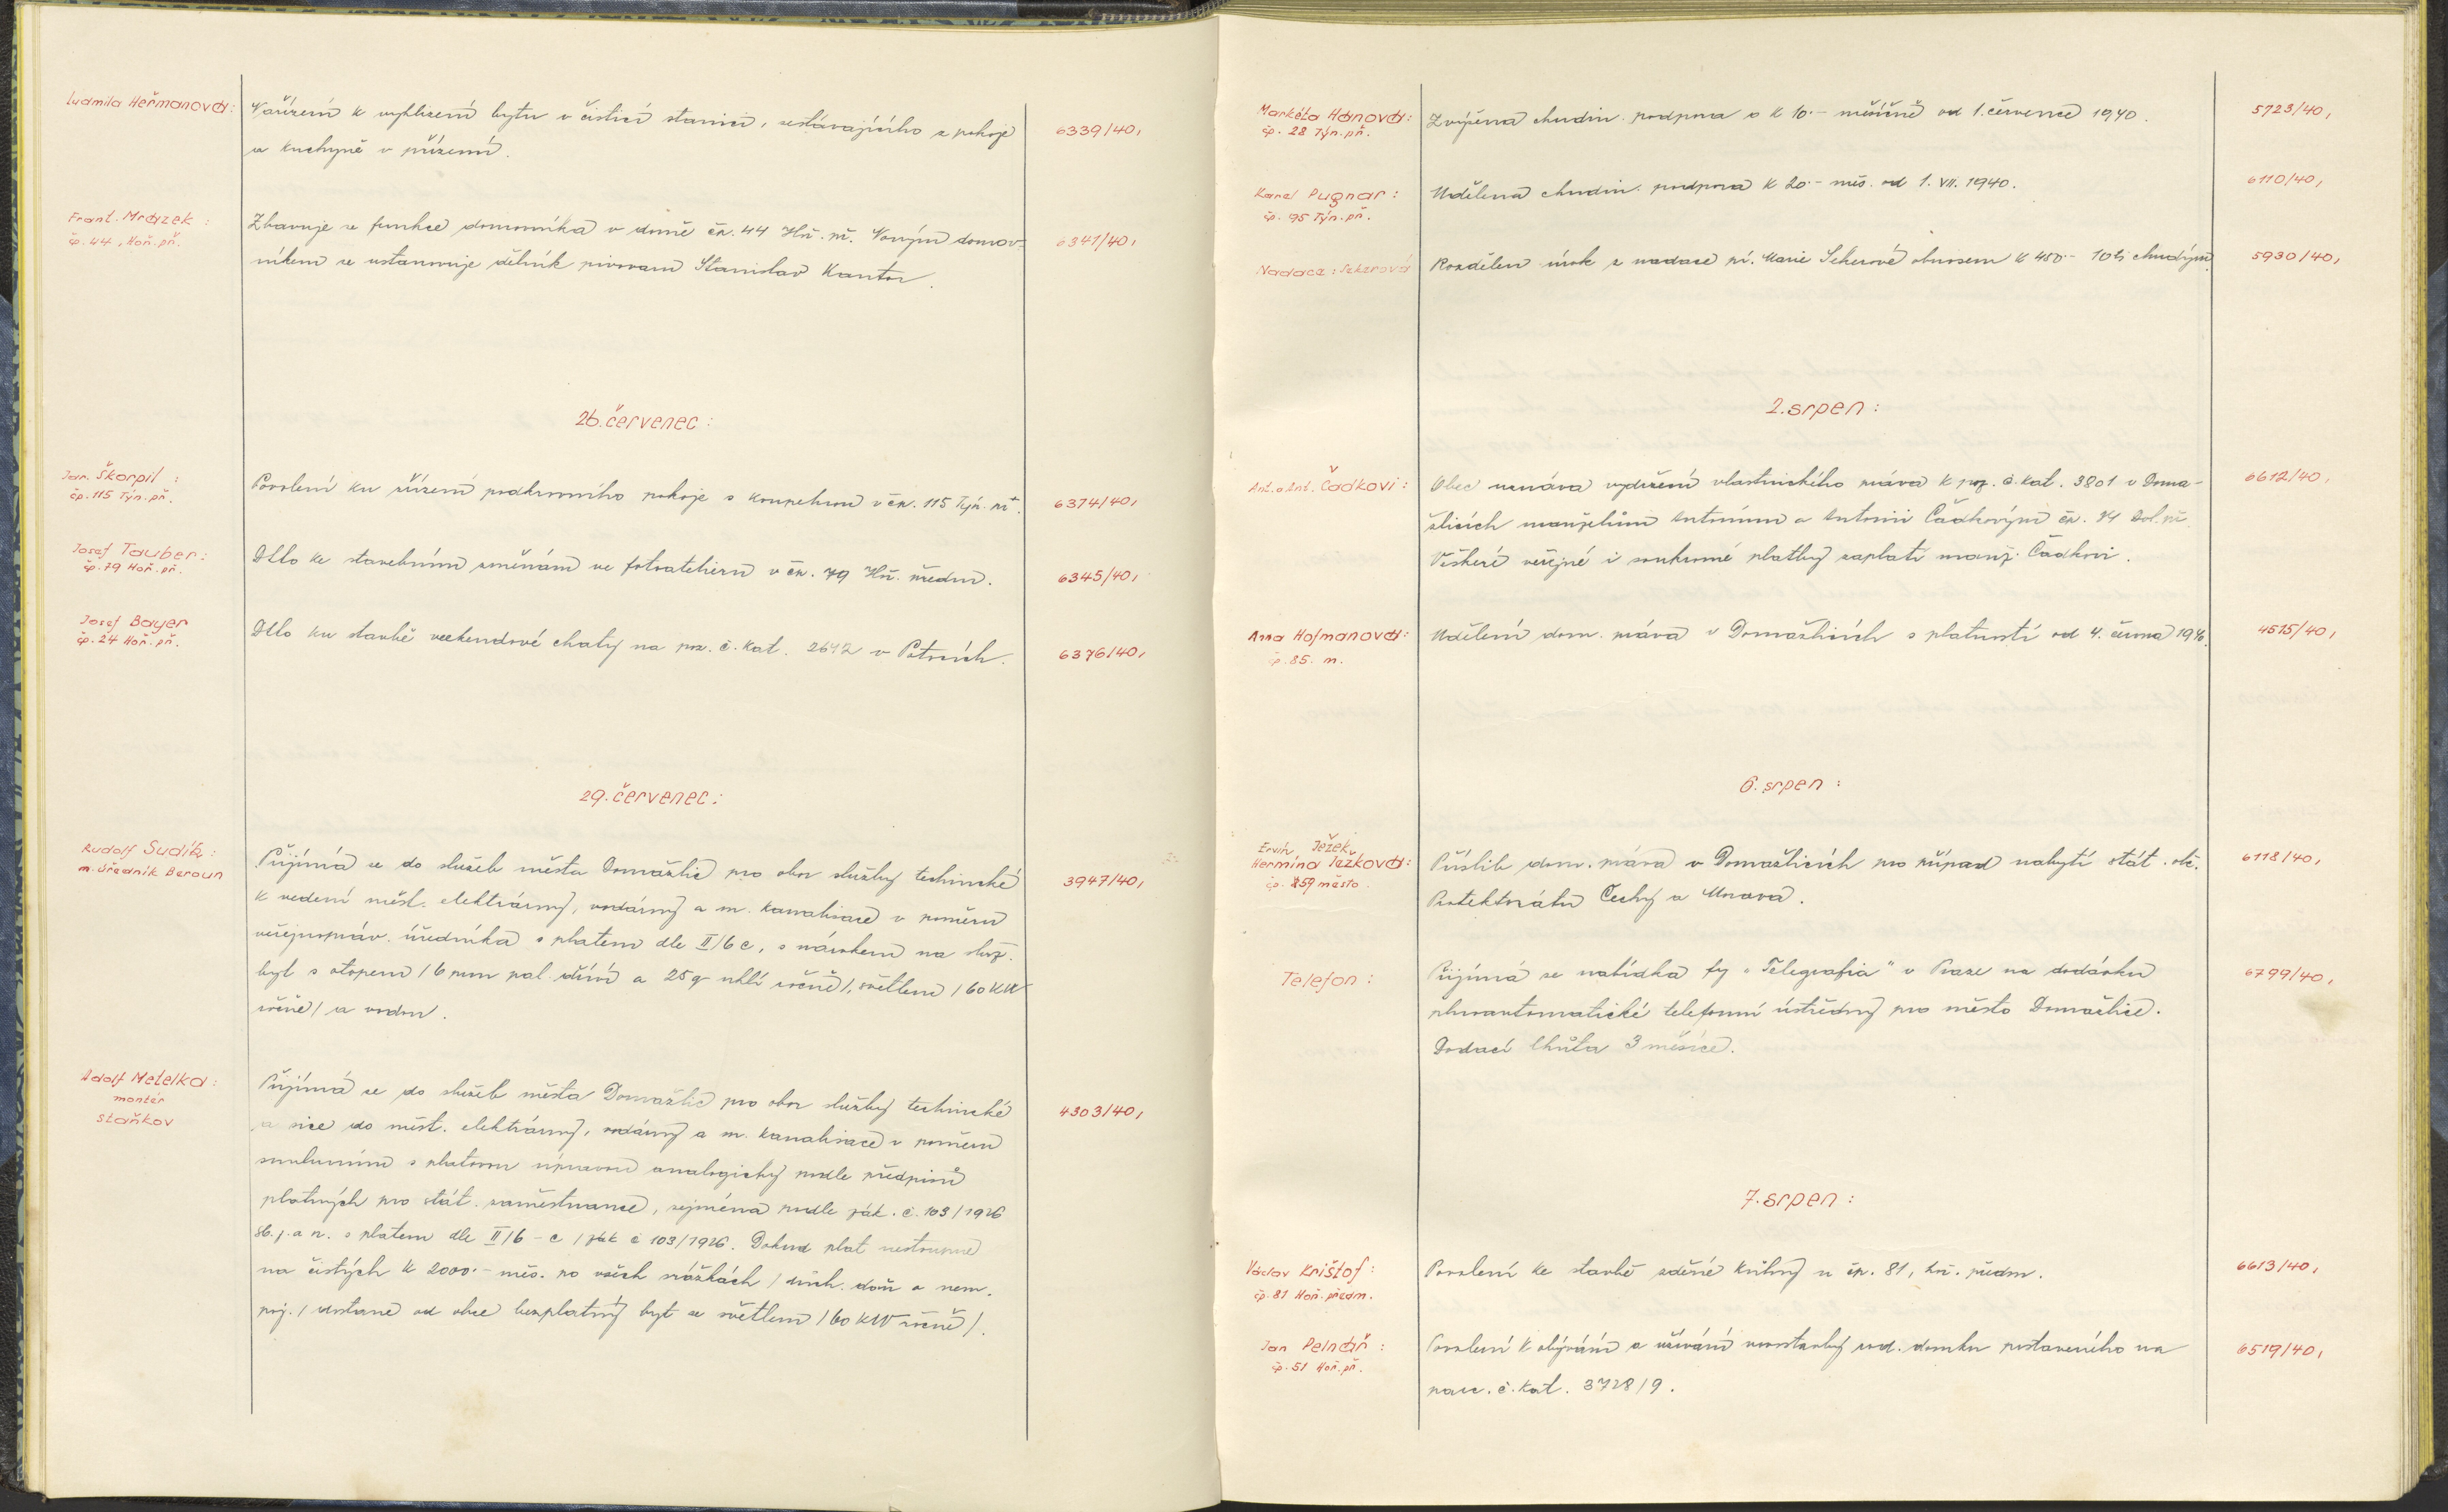 Ludmila Heřmanová:
Nařízení k vyklizení bytu v čistící stanici, sestávajícího z pokoje
a kuchyně v přízemí.
6339/40,
Frant. Mrázek:
čp. 44, Hoř. př.
Zbavuje se funkce domovníka v domě čp. 44 Hoř. př. Novým domov-
níkem se ustanovuje dělník pivovaru Stanislav Kantor.
6341/40,
26. červenec:
Jan. Škorpil:
čp. 115 Týn. př.
Povolení ku zřízení podkrovního pokoje s koupelnou v čp. 115 Týn. př.
6374/40,
Josef Tauber:
čp. 79 Hoř. př.
Dtto ke stavebním změnám ve fotoatelieru v čp. 79 Hoř. předm.
6345/40,
Josef Bayer
čp. 24 Hoř. př.
Dtto ku stavbě weekendové chaty na poz. č. kat. 2642 v
6376/40,
29. červenec:
Rudolf Sudík:
m. úředník Beroun
Přijímá se do služeb města Domažlic pro obor služby technické
k vedení měst. elektrárny, vodárny a m. kanalisace v poměru
veřejnopráv. úředníka s platem dle II/6 c, s nárokem na služ.
byt s otopem / 6 prm pal. dříví a 25 q uhlí ročně /, světlem / 60 KW
ročně / a vodou.
3947/40,
Adolf Metelka:
montér
Staňkov
Přijímá se do služeb města Domažlic pro obor služby technické
a sice do měst. elektrárny, vodárny a m. kanalisace v poměru
smluvním s platovou úpravou analogicky podle předpisů
platných pro stát. zaměstnance, zejména podle zák. č. 103/1926
Sb. z. a n. s platem dle II/6 - c / zák č 103/1926. Dokud plat nestoupne
na čistých K 2000.- měs. po všech srážkách / důch. daň a nem.
poj. / dostane od obce bezplatný byt se světlem / 60 KW ročně /.
4303/40,
Markéta Hanová:
čp. 28 Týn. př.
Zvýšena chudin. podpora o K 10.- měsíčně od 1. července 1940.
5723/40,
Karel Pugnar:
čp. 95 Týn. př.
Udělena chudin. podpora K 20.- měs. od 1. VII. 1940.
6110/40,
Nadace: Sekerová
Rozdělen úrok z nadace pí. Marie Sekerové obnosem K 450.- 10ti chudým.
5930/40,
2. srpen:
Ant. a Ant. Čadkovi:
Obec uznává vydržení vlastnického práva k poz. č. kat. 3801 v Doma-
žlicích manželům Antonínu a Antonii Čadkovým čp. 74 Dol. př.
Veškeré veřejné i soukromé platby zaplatí manž. Čadkovi.
6612/40,
Anna Hofmanová:
čp. 85. m.
Udělení dom. práva v Domažlicích s platností od 4. června 1940.
4515/40,
6. srpen:
Ervín Ježek
Hermína Ježková:
čp. 159 město
Příslib dom. práva v Domažlicích pro případ nabytí stát. obč.
Protektorátu Čechy a Morava.
6118/40,
Telefon:
Přijímá se nabídka fy "Telegrafia" v Praze na dodávku
plnoautomatické telefonní ústředny pro město Domažlice.
Dodací lhůta 3 měsíce.
6799/40,
7. srpen:
Václav Krištof:
čp. 81 Hoř. předm.
Povolení ke stavbě zděné kůlny u čp. 81, hoř. předm.
6613/40,
Jan Pelnář:
čp. 51 Hoř. př.
Povolení k obývání a užívání novostavby rod. domku postaveného na
parc. č. kat. 3728/9.
6519/40,